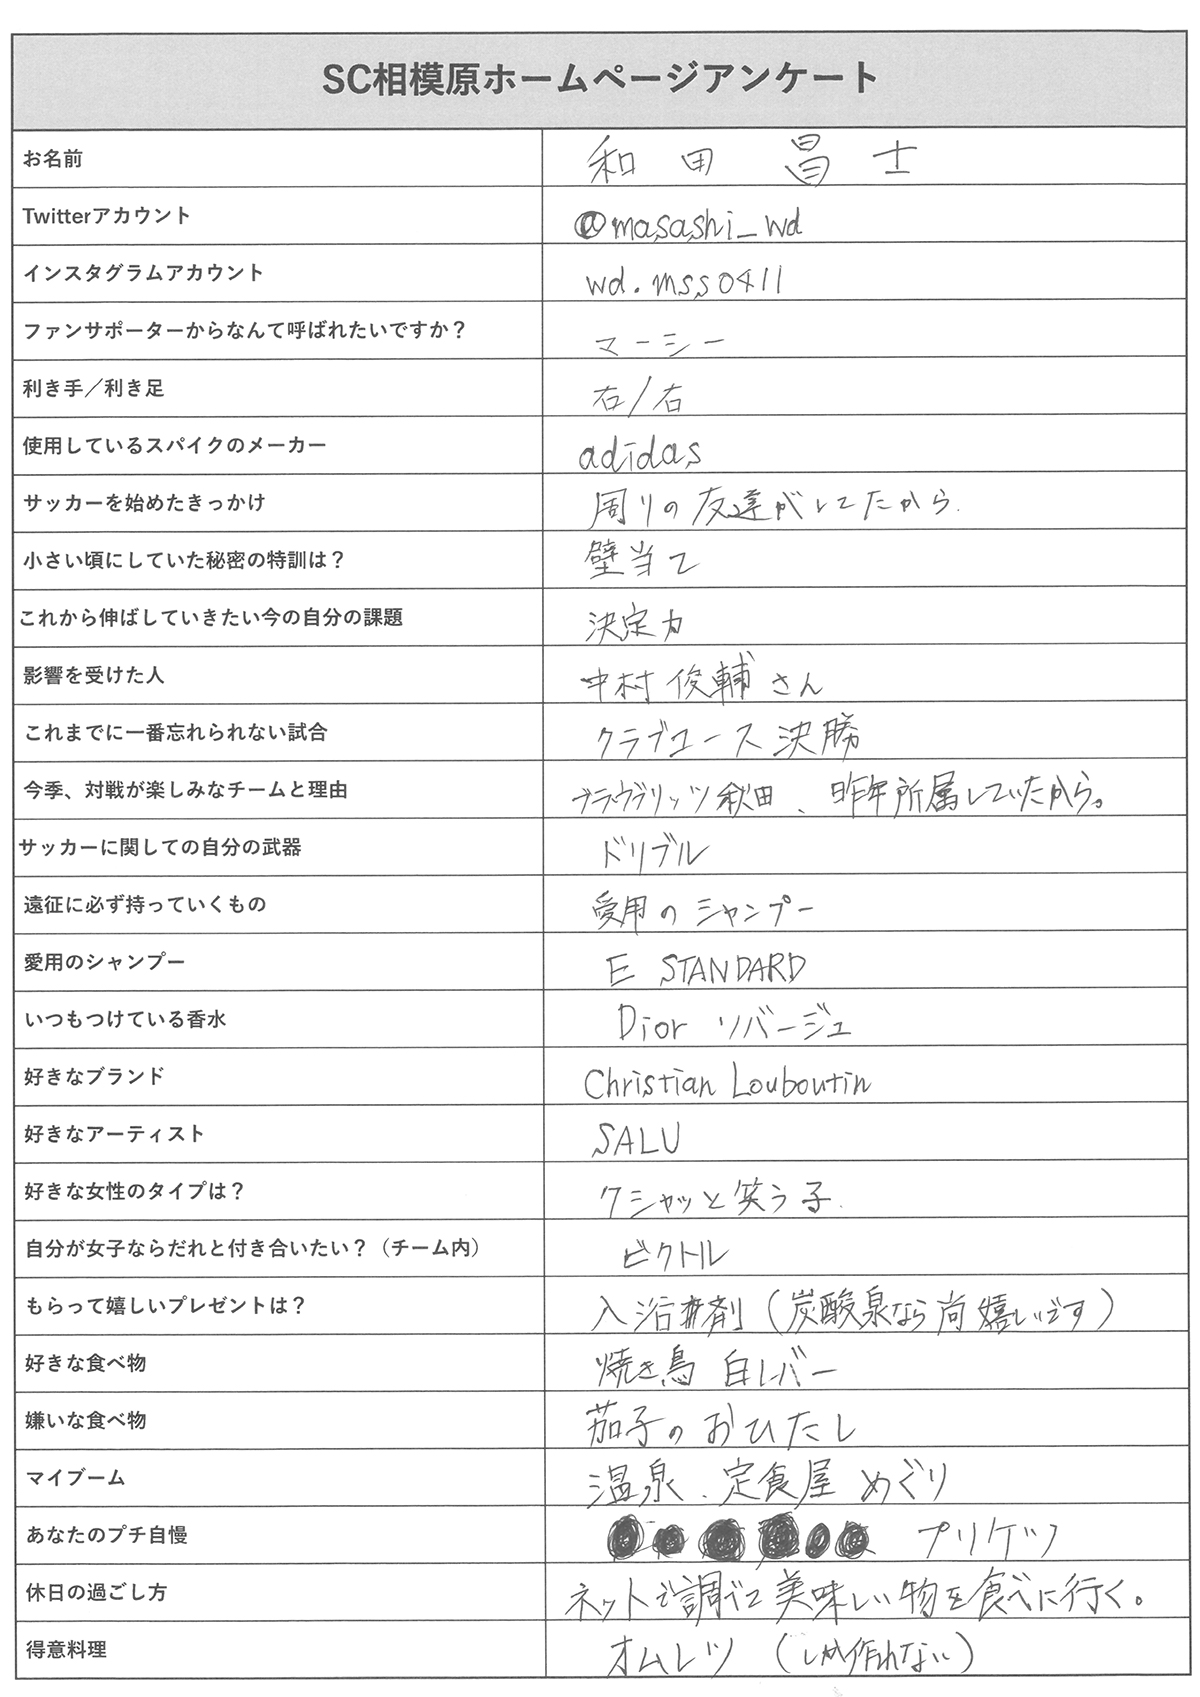 SC相模原ホームページアンケート
お名前 和田 昌士
Twitterアカウント @masashi_wd
インスタグラムアカウント wd.mss0411
ファンサポーターからなんて呼ばれたいですか？ マーシー
利き手／利き足 右/右
使用しているスパイクのメーカー adidas
サッカーを始めたきっかけ 周りの友達がしてたから.
小さい頃にしていた秘密の特訓は？ 壁当て
これから伸ばしていきたい今の自分の課題 決定力
影響を受けた人 中村俊輔さん
これまでに一番忘れられない試合 クラブユース決勝
今季、対戦が楽しみなチームと理由 ブラウブリッツ秋田、昨年所属していたから。
サッカーに関しての自分の武器 ドリブル
遠征に必ず持っていくもの 愛用のシャンプー
愛用のシャンプー E STANDARD
いつもつけている香水 Dior ソバージュ
好きなブランド Christian Louboutin
好きなアーティスト SALU
好きな女性のタイプは？ クシャッと笑う子.
自分が女子ならだれと付き合いたい？（チーム内） ビクトル
もらって嬉しいプレゼントは？ 入浴剤（炭酸泉なら尚嬉しいです）
好きな食べ物 焼き鳥 白レバー
嫌いな食べ物 茄子のおひたし
マイブーム 温泉、定食屋めぐり
あなたのプチ自慢 プリケツ
休日の過ごし方 ネットで調べて美味しい物を食べに行く。
得意料理 オムレツ（しか作れない）